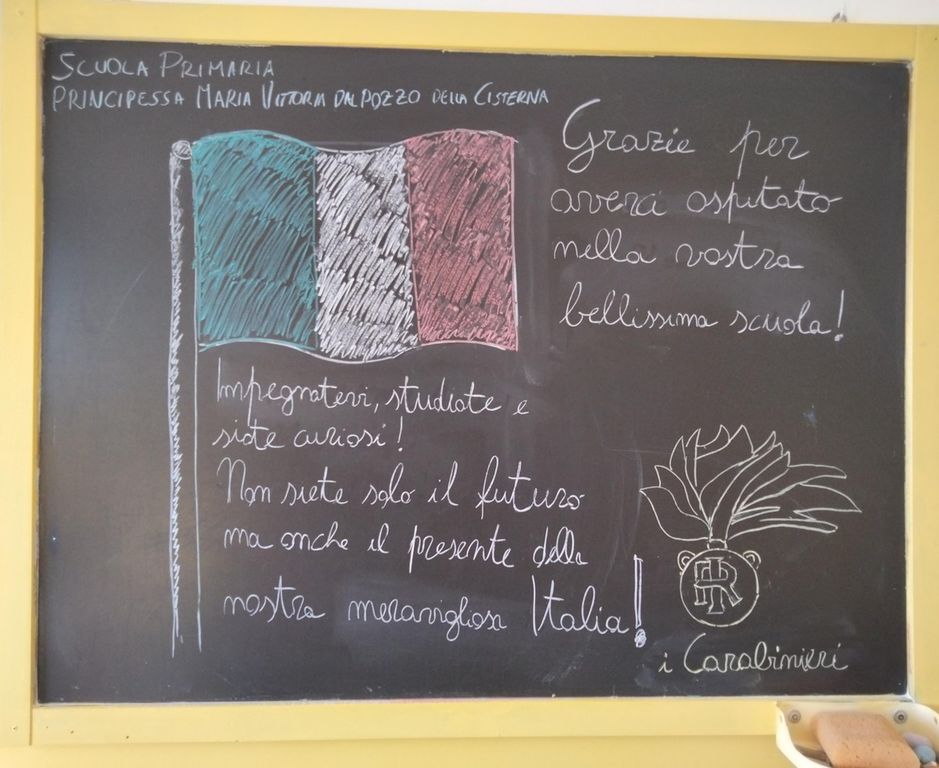 SCUOLA PRIMARIA
PRINCIPESSA MARIA VITTORIA DAL POZZO DELLA CISTERNA
Grazie per
averci ospitato
nella vostra
bellissima scuola!
Impegnatevi, studiate e
siate curiosi!
Non siete solo il futuro
ma anche il presente della
nostra meravigliosa Italia!
RI
i Carabinieri